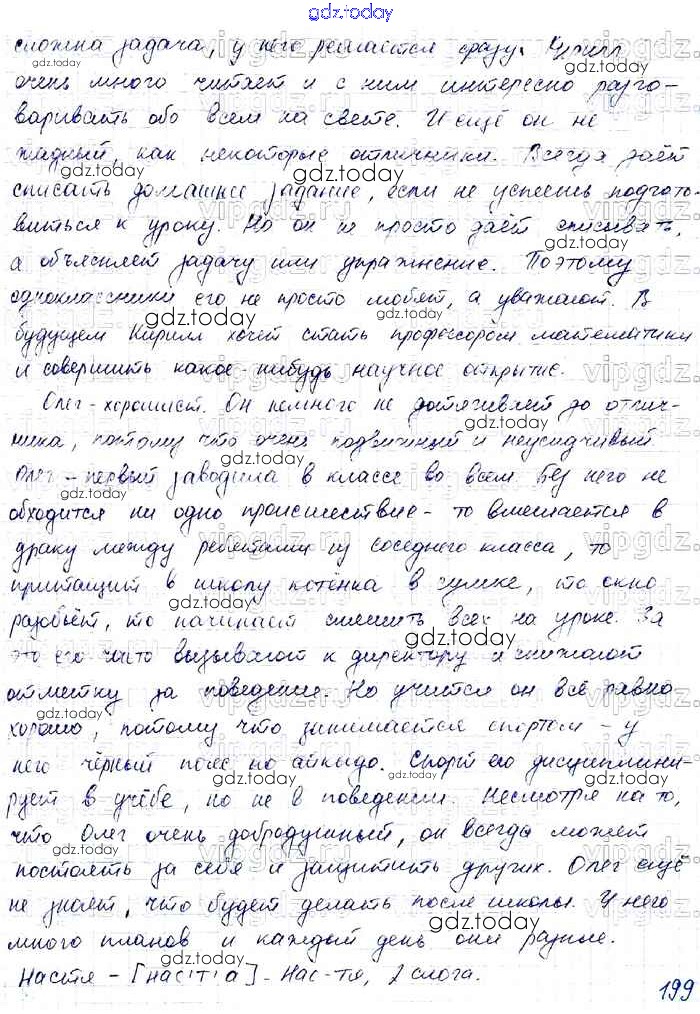 gdz.today
сложна задача, у него решается сразу. Кирилл
очень много читает и с ним интересно разго-
варивать обо всем на свете. И ещё он не
жадный, как некоторые отличники. Всегда даёт
списать домашнее задание, если не успеешь подгото-
виться к уроку. Но он не просто даёт списывать,
а объясняет задачу или упражнение. Поэтому
одноклассники его не просто любят, а уважают. В
будущем Кирилл хочет стать профессором математики
и совершить какое-нибудь научное открытие.
Олег - хорошист. Он немного не дотягивает до отлич-
ника, потому что очень подвижный и неусидчивый.
Олег - первый заводила в классе во всем. Без него не
обходится ни одно происшествие - то вмешается в
драку между ребятами из соседнего класса, то
притащит в школу котёнка в сумке, то окно
разобьёт, то начинает смешить всех на уроке. За
это его часто вызывают к директору и снижают
отметку за поведение. Но учится он всё равно
хорошо, потому что занимается спортом - у
него чёрный пояс по айкидо. Спорт его дисциплини-
рует в учёбе, но не в поведении. Несмотря на то,
что Олег очень добродушный, он всегда может
постоять за себя и защитить других. Олег ещё
не знает, что будет делать после школы. У него
много планов и каждый день они разные.
Настя - [нас'т'а]. Нас-тя, 2 слога.
199